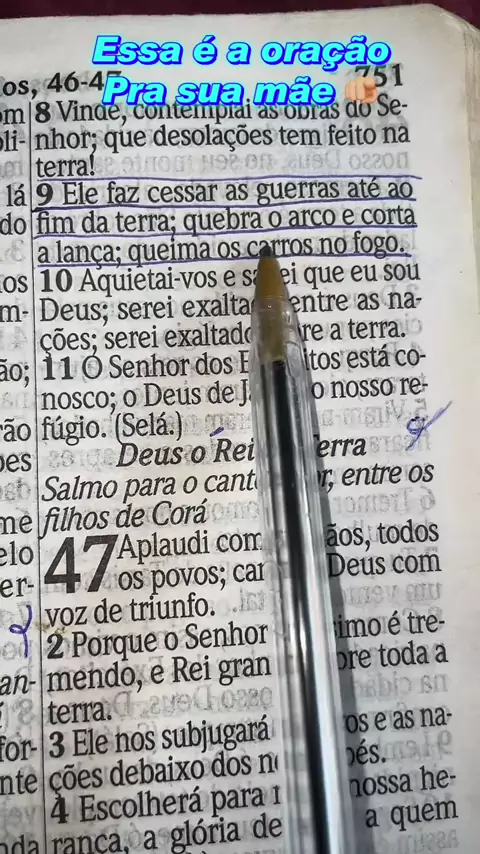 Essa é a oração
Pra sua mãe
os, 46-47
751
8 Vinde, contemplai as obras do Se-
nhor; que desolações tem feito na
terra!
9 Ele faz cessar as guerras até ao
fim da terra; quebra o arco e corta
a lança; queima os carros no fogo.
10 Aquietai-vos e sabei que eu sou
Deus; serei exaltado entre as na-
ções; serei exaltado re a terra.
11 O Senhor dos E itos está co-
nosco; o Deus de J o nosso re-
fúgio. (Selá.)
Deus o Rei Terra
Salmo para o cant r, entre os
filhos de Corá
47 Aplaudi com ãos, todos
os povos; can Deus com
voz de triunfo.
2 Porque o Senhor simo é tre-
mendo, e Rei gran bre toda a
terra.
3 Ele nos subjugará os e as na-
ções debaixo dos n pés.
4 Escolherá para n nossa he-
rança, a glória de a quem